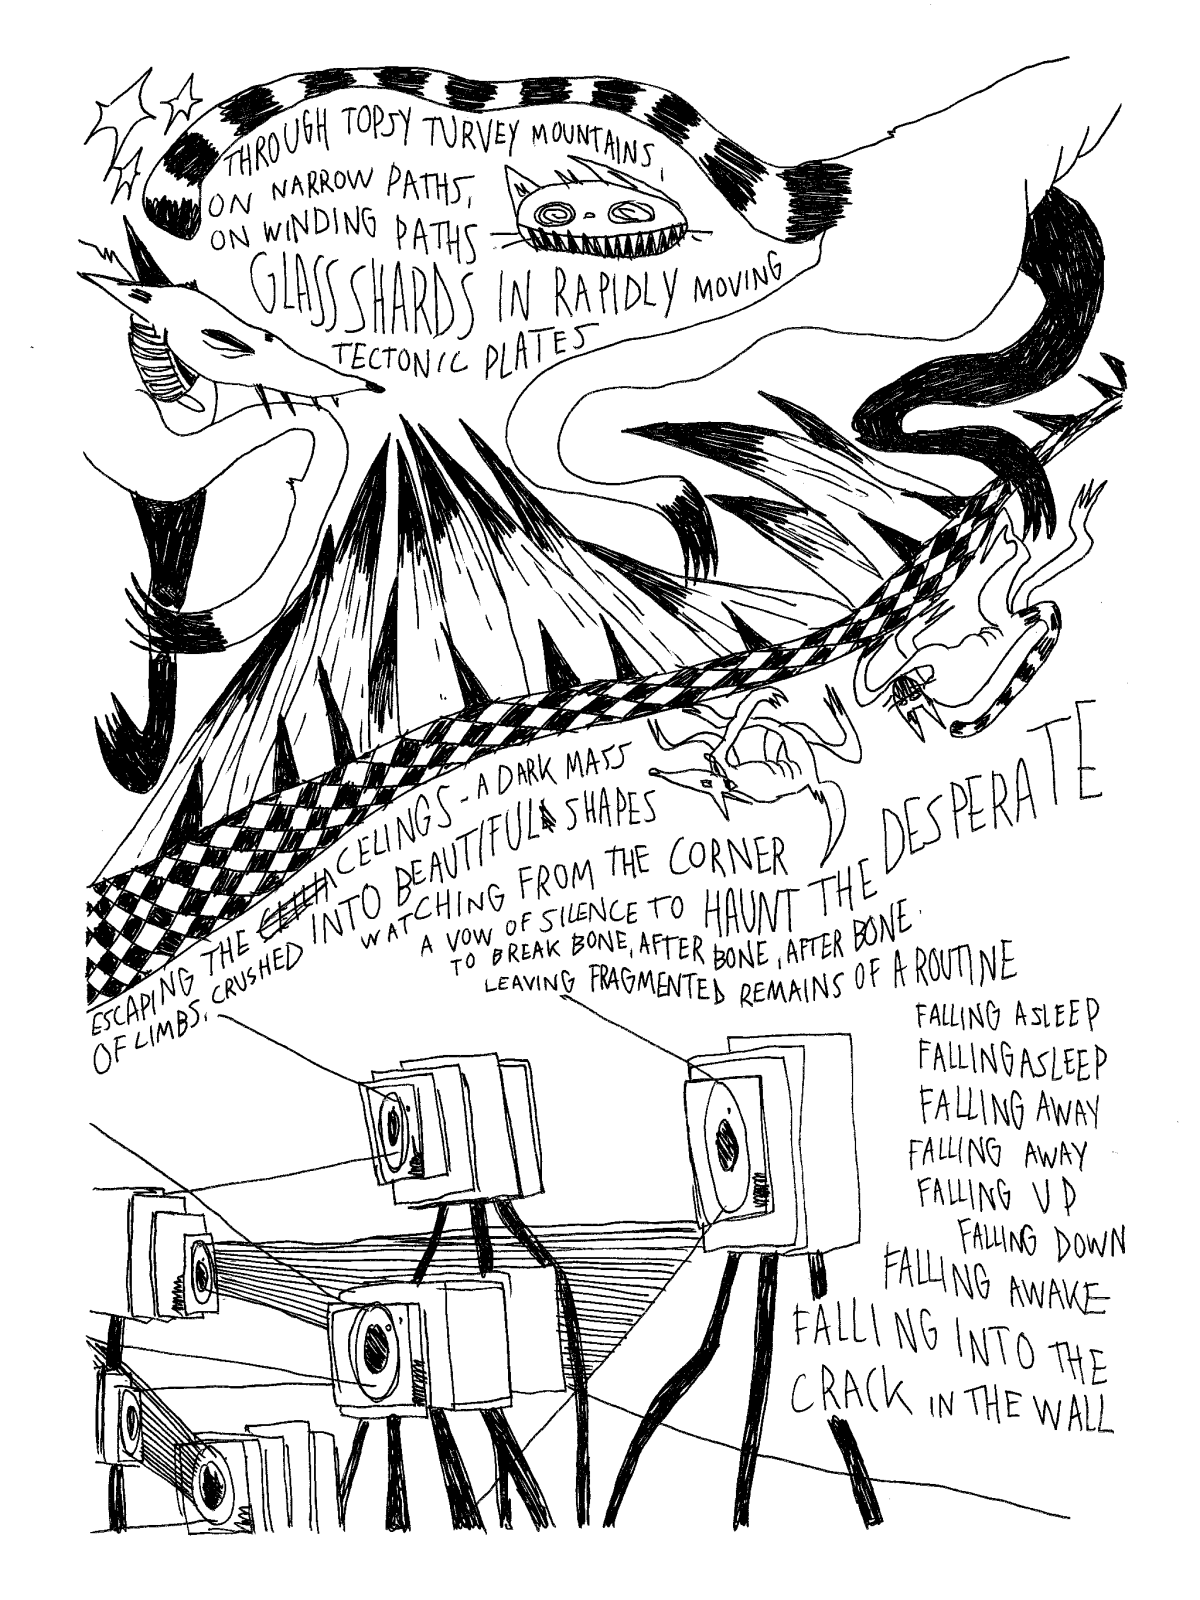 THROUGH TOPSY TURVEY MOUNTAINS,
ON NARROW PATHS,
ON WINDING PATHS
GLASS SHARDS IN RAPIDLY MOVING
TECTONIC PLATES
ESCAPING THE CELINGS - A DARK MASS
OF LIMBS, CRUSHED INTO BEAUTIFUL SHAPES
WATCHING FROM THE CORNER
A VOW OF SILENCE TO HAUNT THE DESPERATE
TO BREAK BONE, AFTER BONE, AFTER BONE.
LEAVING FRAGMENTED REMAINS OF A ROUTINE
FALLING ASLEEP
FALLING ASLEEP
FALLING AWAY
FALLING AWAY
FALLING UP
FALLING DOWN
FALLING AWAKE
FALLING INTO THE
CRACK IN THE WALL